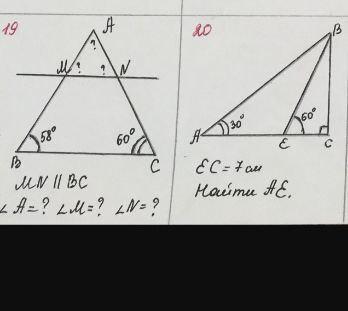 19
A
?
M ? ? N
58°
60°
B
C
MN || BC
∠A=? ∠M=? ∠N=?
20
B
A
30°
60°
E
C
EC = 7 см
Найти AE.